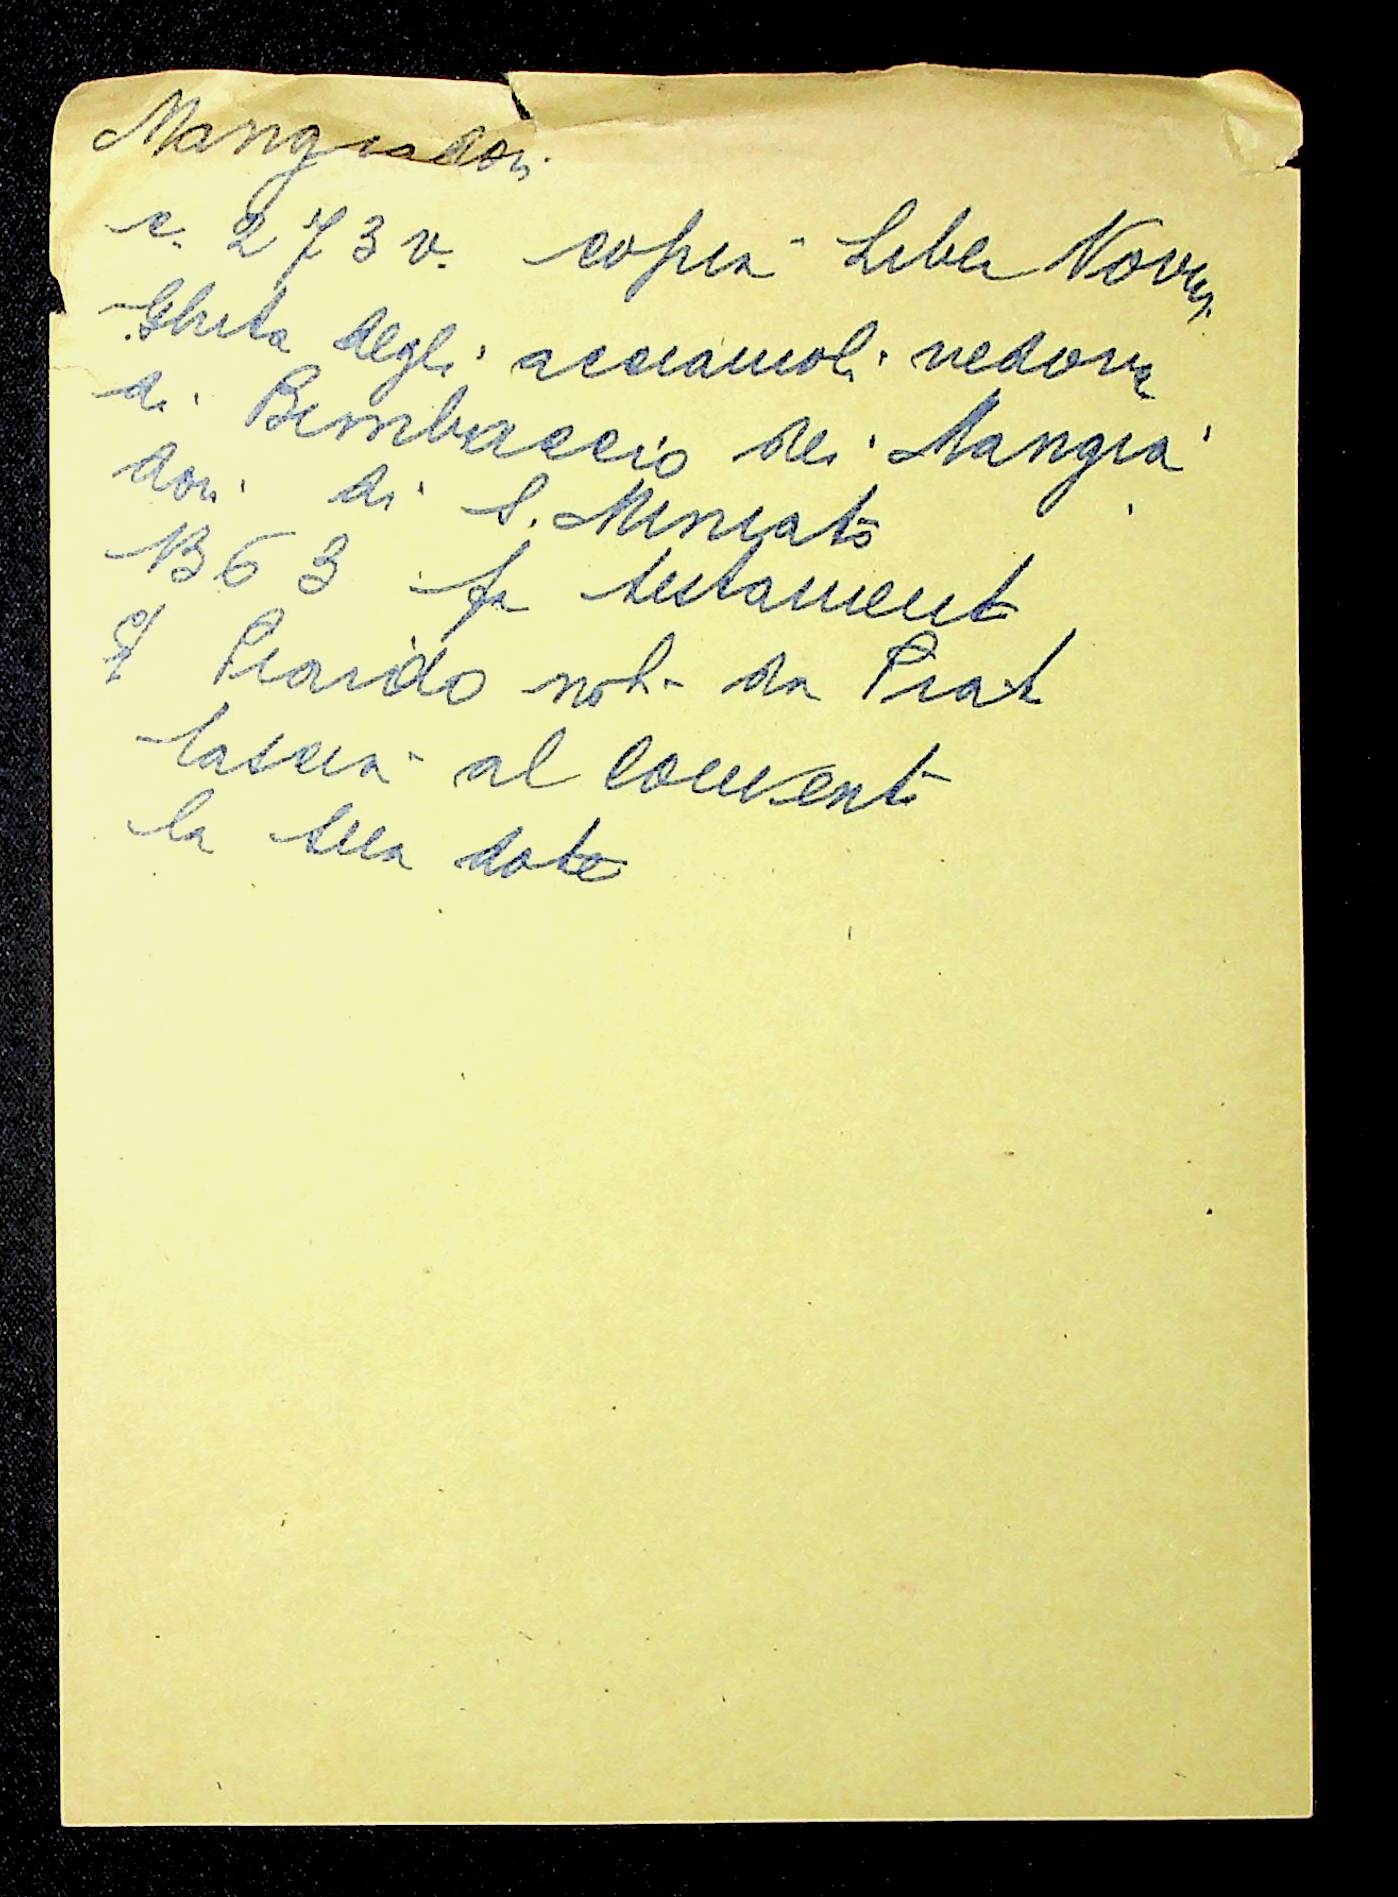 Mangiadori
c. 273 v. copia Liber Novus
Ghita degli acciaiuoli vedova
di Bimbaccio dei Mangia
dori di S. Miniato
1363 fa testamento
Piarido not. da Prato
lascia al convento
la sua dote